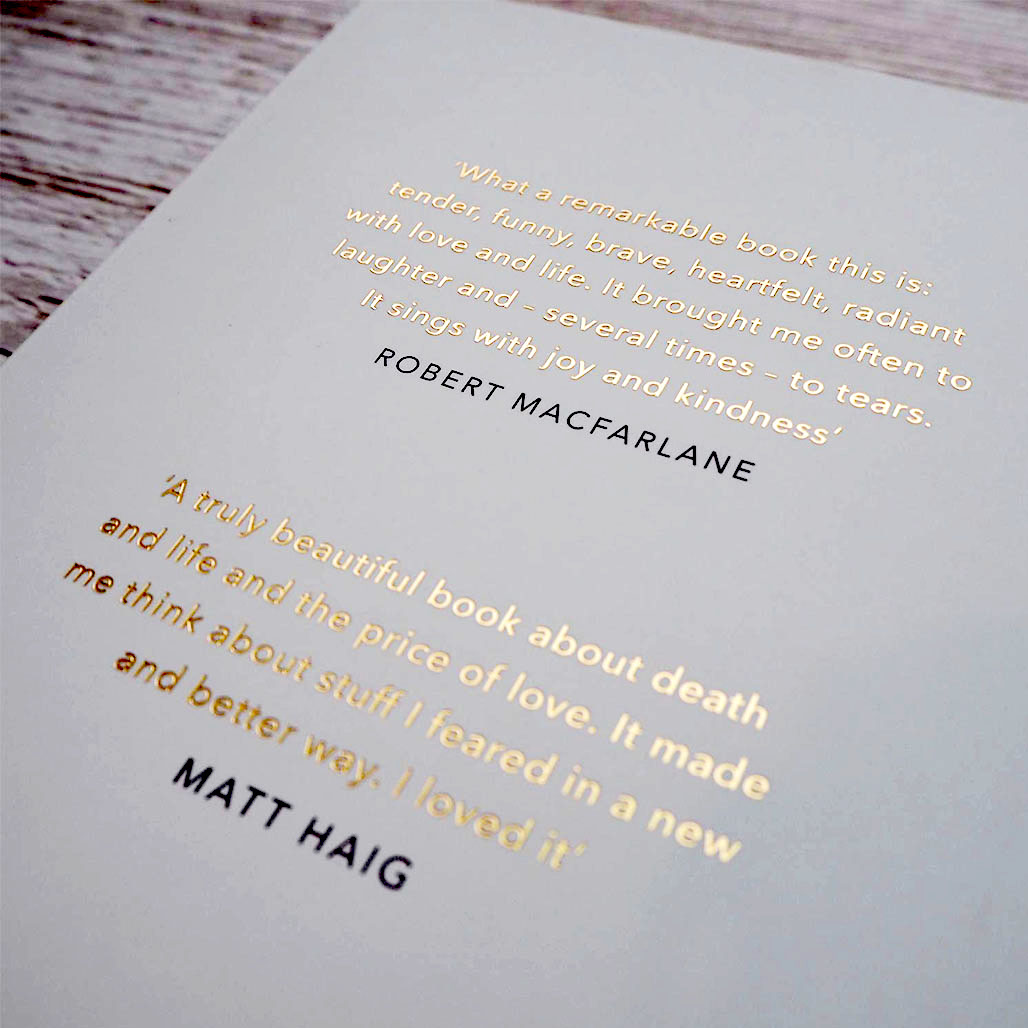 ‘What a remarkable book this is:
tender, funny, brave, heartfelt, radiant
with love and life. It brought me often to
laughter and – several times – to tears.
It sings with joy and kindness’
ROBERT MACFARLANE
‘A truly beautiful book about death
and life and the price of love. It made
me think about stuff I feared in a new
and better way. I loved it’
MATT HAIG